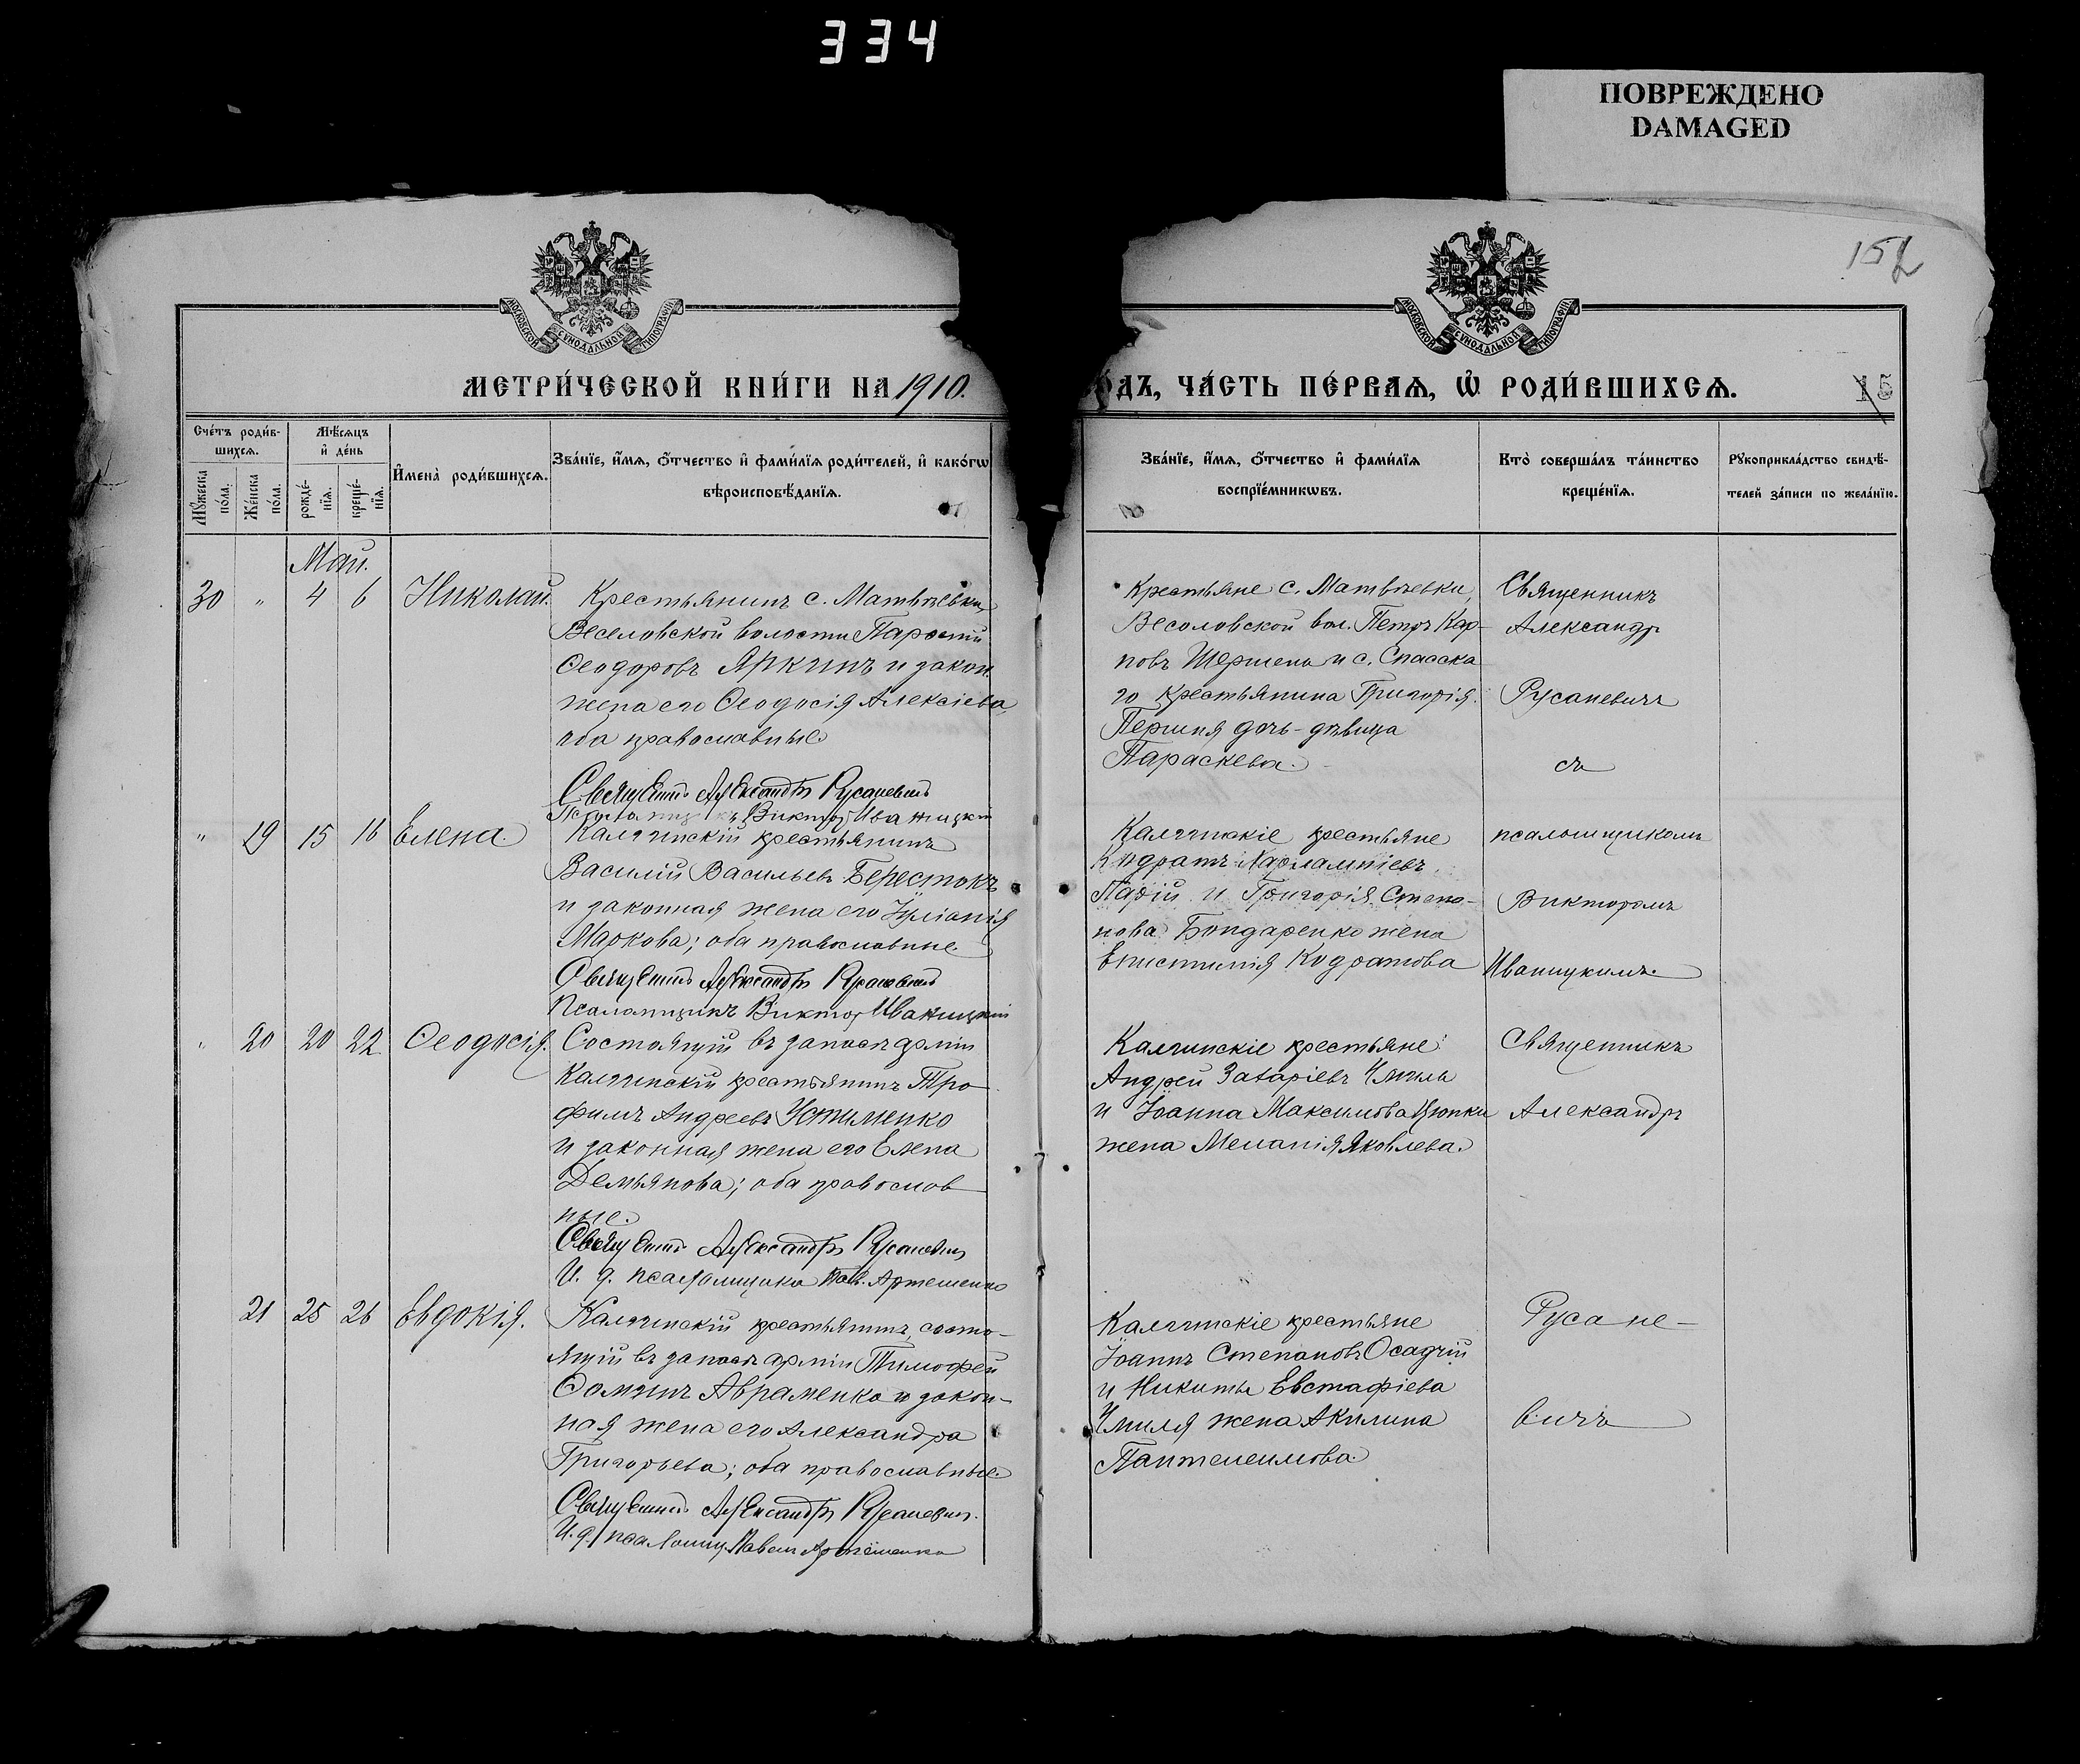 334
ПОВРЕЖДЕНО
DAMAGED
152
МОСКОВСКОЙ СѴНОДАЛЬНОЙ ТИПОГРАФІИ
МОСКОВСКОЙ СѴНОДАЛЬНОЙ ТИПОГРАФІИ
МЕТРИ́ЧЕСКОЙ КНИ́ГИ НА 1910.
О́ДЪ, ЧА́СТЬ ПЕ́РВАѦ, Ѡ҆ РОДИ́ВШИХСѦ.
15
Сче́тъ роди́в-
шихсѧ.
Мѣ́сѧцъ
и҆ де́нь
Мꙋ́жеска по́ла.
Же́нска по́ла.
рожде́-нїѧ.
креще́-нїѧ.
И҆мена̀ роди́вшихсѧ.
Зва́нїе, и҆́мѧ, ѻ҆́тчество и҆ фами́лїѧ роди́телей, и҆ како́гѡ
вѣроисповѣ́данїѧ.
Зва́нїе, и҆́мѧ, ѻ҆́тчество и҆ фами́лїѧ
воспрїе́мникѡвъ.
Кто̀ соверша́лъ та́инство
креще́нїѧ.
Рꙋкоприкла́дство свидѣ́-
телей за́писи по жела́нїю.
Май.
30 " 4 6 Николай.
Крестьянинъ с. Матвѣевки,
Веселовской волости
Ѳеодоровъ Яркинъ и закон.
жена его Ѳеодосія Алексіева,
оба православные.
Священникъ Александръ Русаневичъ
Псаломщикъ Викторъ Иваницкій
Крестьяне с. Матвѣевки,
Весоловской вол. Петръ Кар-
повъ Шершена и с. Спасска
го крестьянина Григорія
Першия дочь-дѣвица
Параскева.
Священникъ
Александръ
Русаневичъ
съ
" 19 15 16 Елена.
Калячинскій крестьянинъ
Василій Васильевъ Берестокъ
и законная жена его Іуліанія
Маркова; оба православные.
Священникъ Александръ Русаневичъ
Псаломщикъ Викторъ Иваницкій
крестьяне
Кидратъ Харлампіевъ
Падій и Григорія Степа-
нова Бондаренко жена
Епистимія Кодратова
псаломщикомъ
Викторомъ
Иваницкимъ.
" 20 20 22 Ѳеодосія.
Состоящій въ запасѣ арміи
крестьянинъ Тро
фимъ Андреевъ Устименко
и законная жена его Елена
Демьянова; оба православ
ные.
Священникъ Александръ Русаневичъ
И. д. псаломщика Пав. Артеменко
крестьяне:
Андрей Захаріевъ Чмиль
и Іоанна Максимова Цюпки
жена Меланія Яковлева.
Священникъ
Александръ
21 25 26 Евдокія.
крестьянинъ, состо-
ящій въ запасѣ арміи Тимофей
Ѳоминъ Авраменко и закон-
ная жена его Александра
Григорьева; оба православные.
Священникъ Александръ Русаневичъ.
И. д. псаломщ. Павелъ Артеменко
крестьяне
Іоаннъ Степановъ Осадчій
и Никиты Евстафіева
Чмиля жена Акилина
Пантелеимова.
Русане-
вичъ